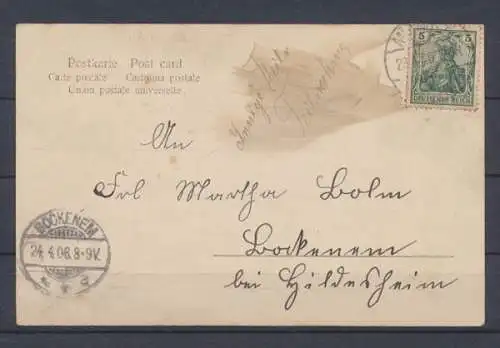 Postkarte Post card
Carte postale Cartolina postale
Union postale universelle
5 5
DEUTSCHES REICH
An
Frl Martha Bolm
Bockenem
bei Hildesheim
BOCKENEM
24.4.06.8-9V.